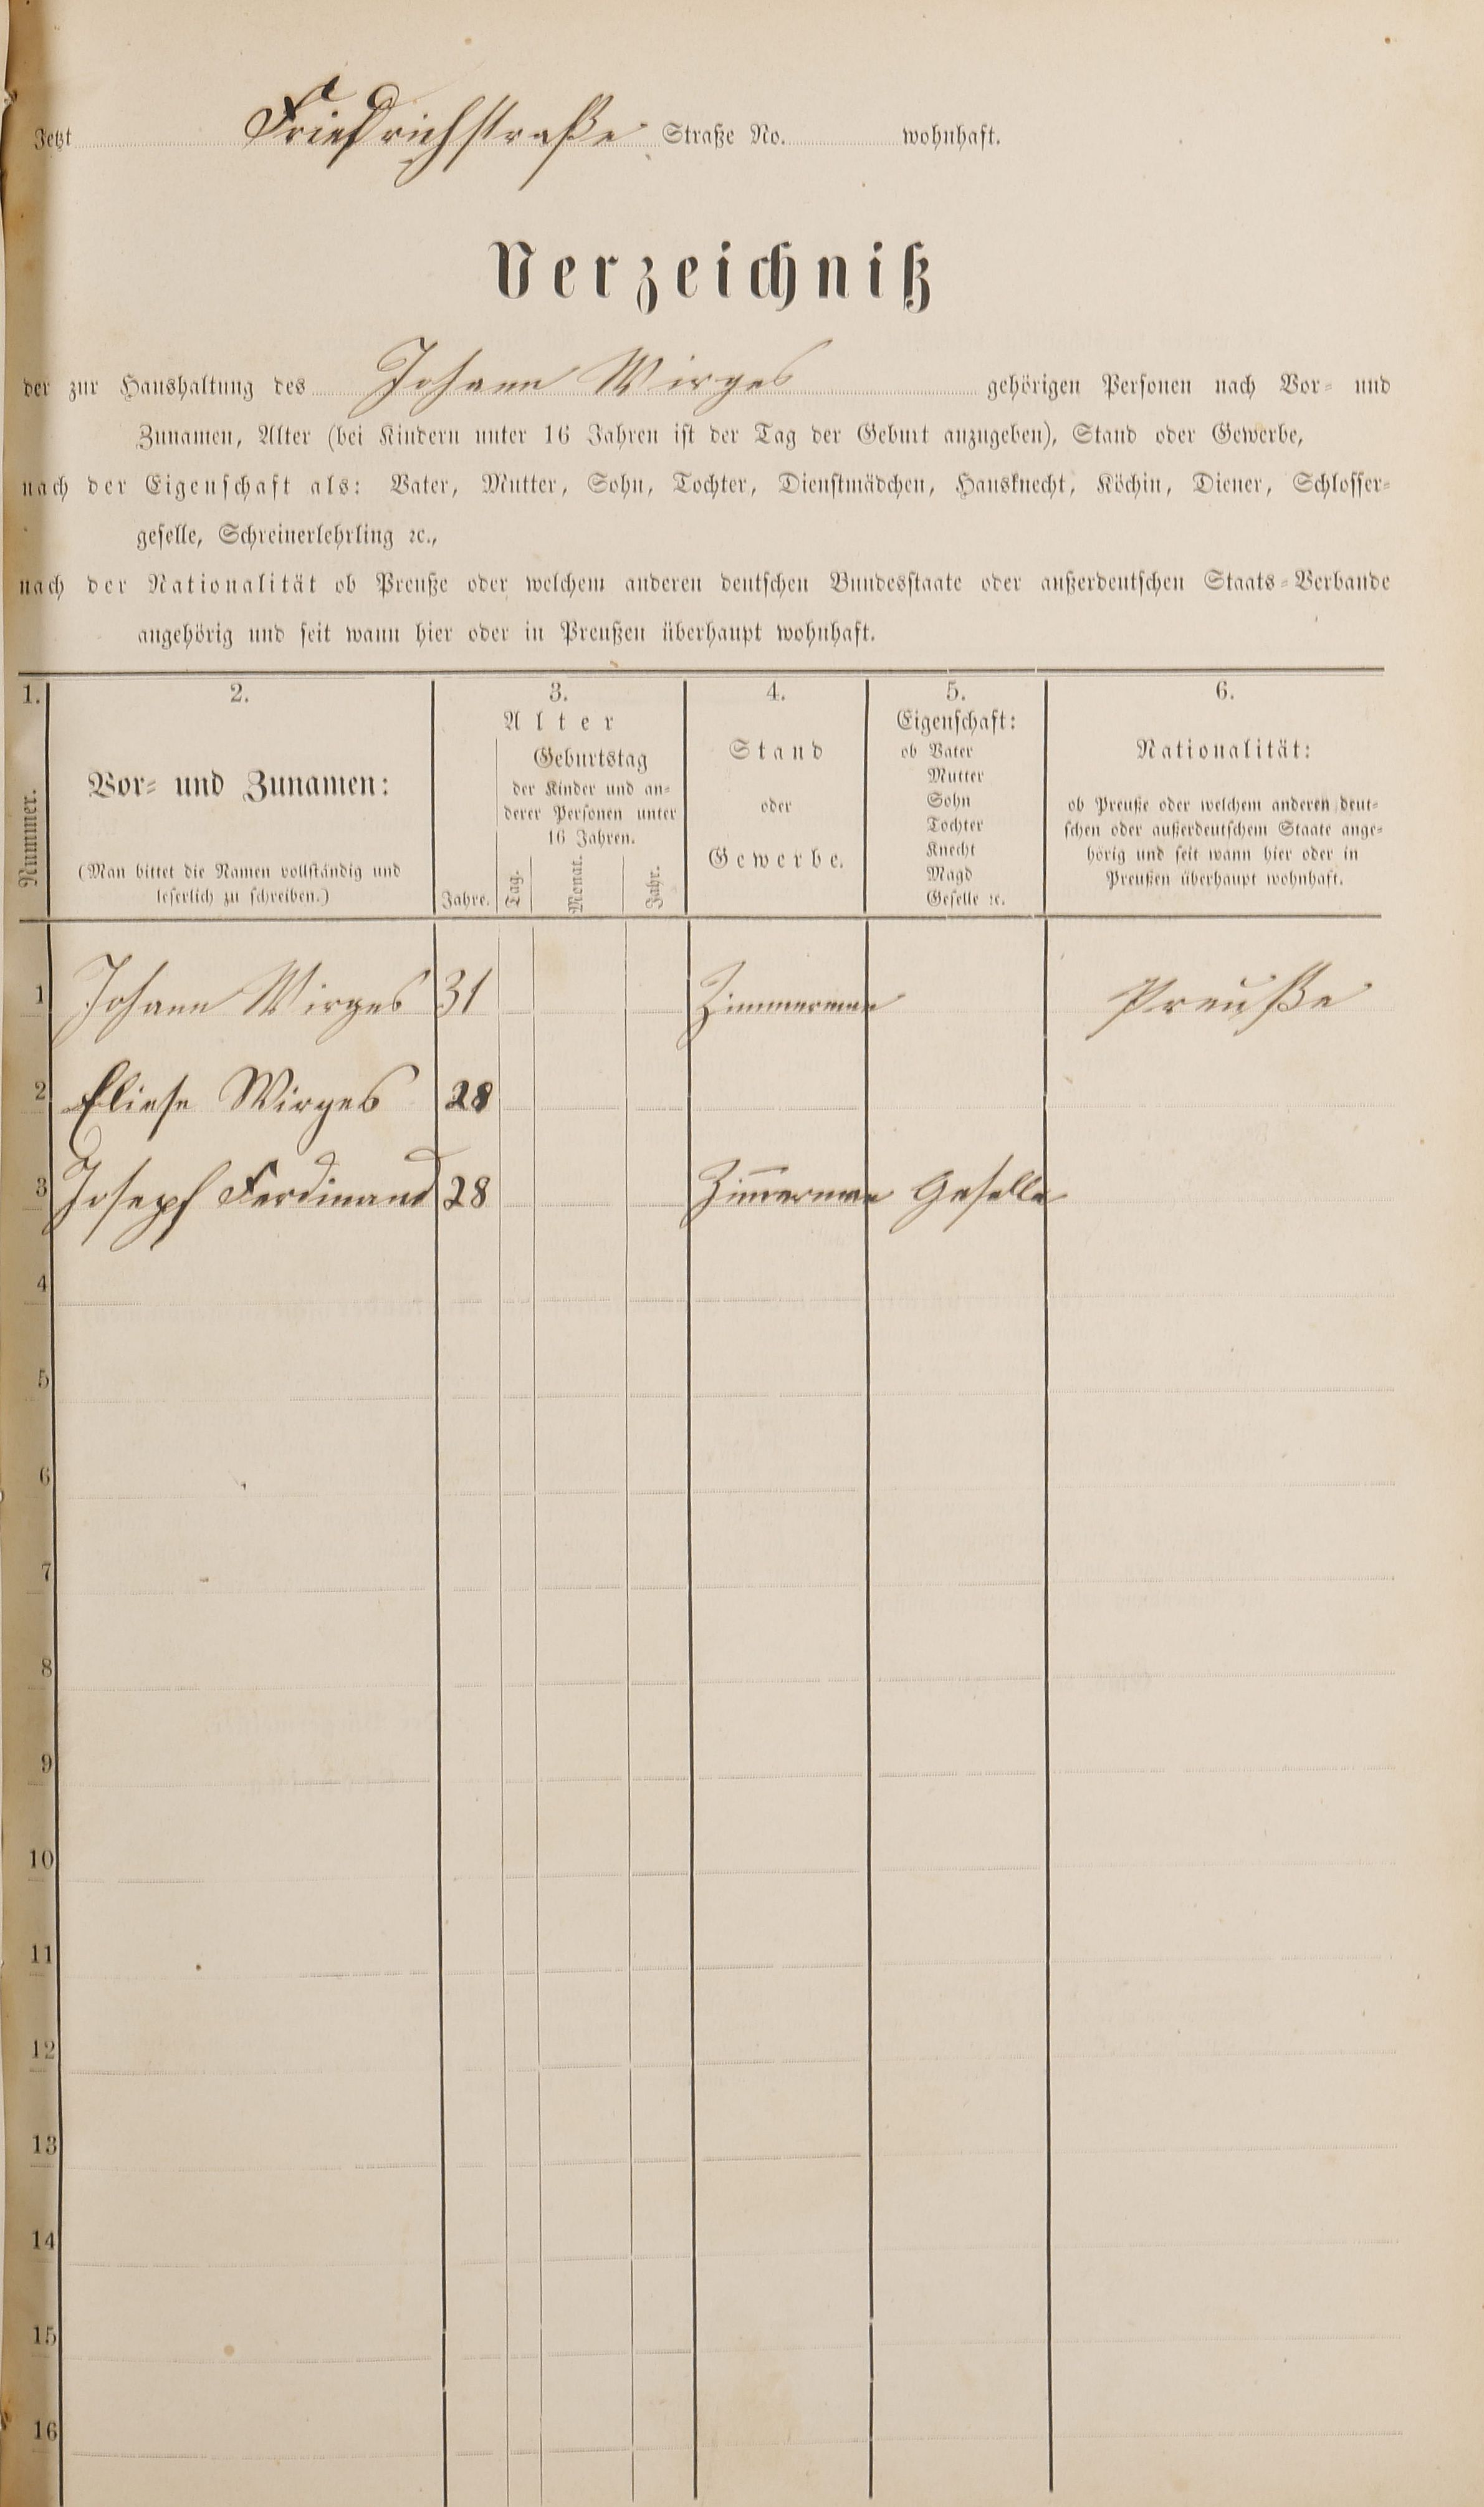 Jetzt Friedrichstraße Straße No. wohnhaft.
Verzeichniß
der zur Haushaltung des Johann Wirges gehörigen Personen nach Vor- und
Zunamen, Alter (bei Kindern unter 16 Jahren ist der Tag der Geburt anzugeben), Stand oder Gewerbe,
nach der Eigenschaft als: Vater, Mutter, Sohn, Tochter, Dienstmädchen, Hausknecht, Köchin, Diener, Schlosser-
geselle, Schreinerlehrling ꝛc.,
nach der Nationalität ob Preuße oder welchem anderen deutschen Bundesstaate oder außerdeutschen Staats-Verbande
angehörig und seit wann hier oder in Preußen überhaupt wohnhaft.
1. 2. 3. 4. 5. 6.
Nummer.
Vor- und Zunamen:
(Man bittet die Namen vollständig und
leserlich zu schreiben.)
Alter
Jahre.
Geburtstag
der Kinder und an-
derer Personen unter
16 Jahren.
Tag. Monat. Jahr.
Stand
oder
Gewerbe.
Eigenschaft:
ob Vater
Mutter
Sohn
Tochter
Knecht
Magd
Geselle ꝛc.
Nationalität:
ob Preuße oder welchem anderen deut-
schen oder außerdeutschem Staate ange-
hörig und seit wann hier oder in
Preußen überhaupt wohnhaft.
1 Johann Wirges 31 Zimmerman Preuße
2 Eliese Wirges 28
3 Joseph Ferdinand 28 Zim̅erman Geselle
4
5
6
7
8
9
10
11
12
13
14
15
16